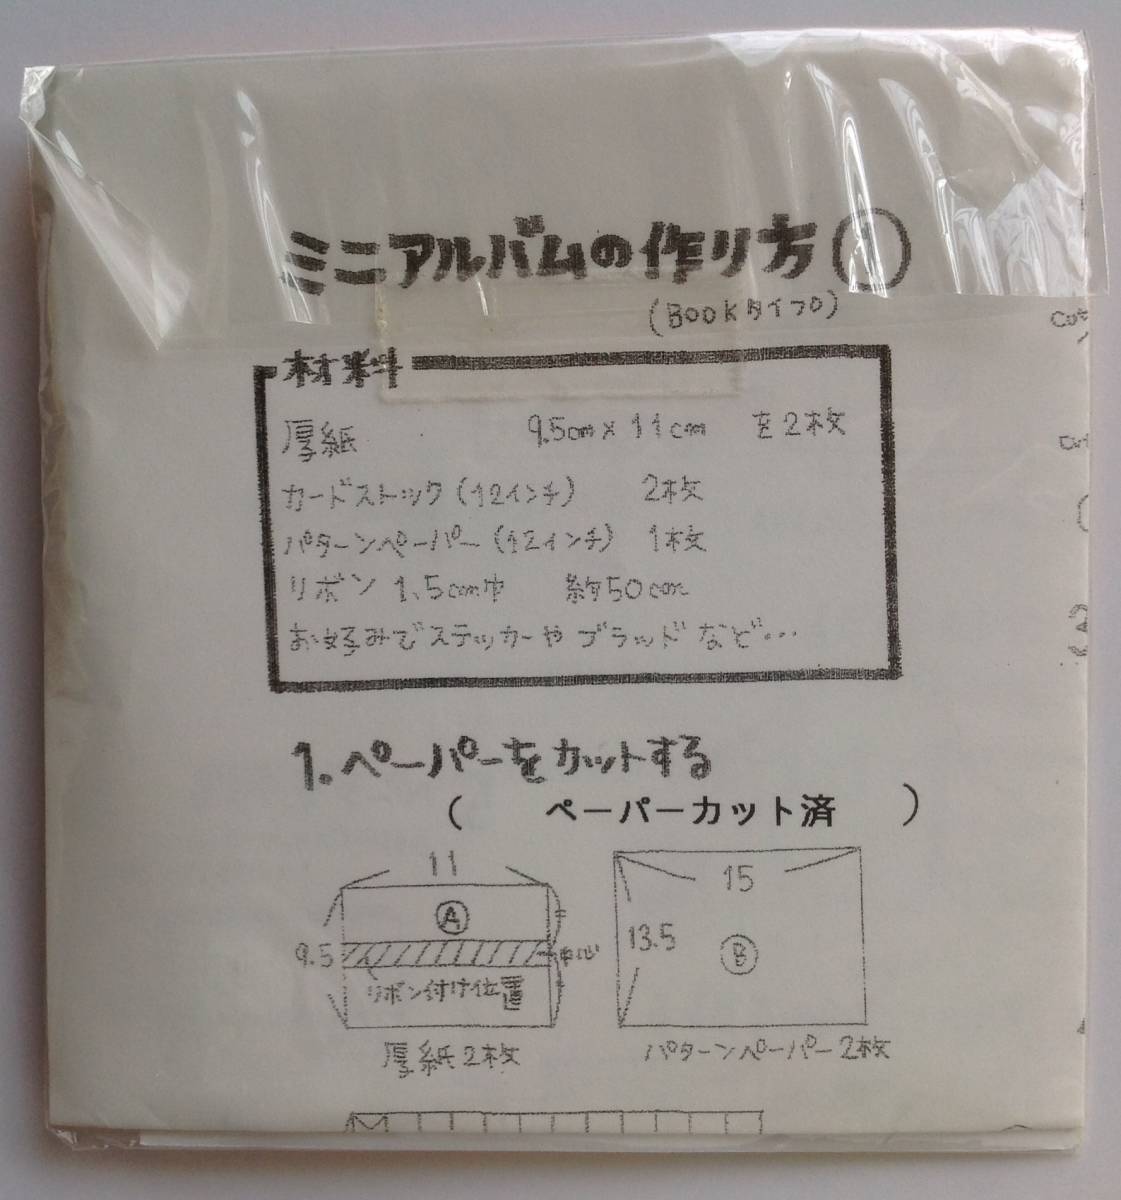 ミニアルバムの作り方①
(BOOKタイプ)
材料
厚紙 9.5cm×11cm を2枚
カードストック(12インチ) 2枚
パターンペーパー(12インチ) 1枚
リボン 1.5cm巾 約50cm
お好みでステッカーや ブラッドなど…
1.ペーパーをカットする
( ペーパーカット済 )
11
Ⓐ
9.5
中心
リボン付け位置
厚紙2枚
15
13.5
Ⓑ
パターンペーパー2枚